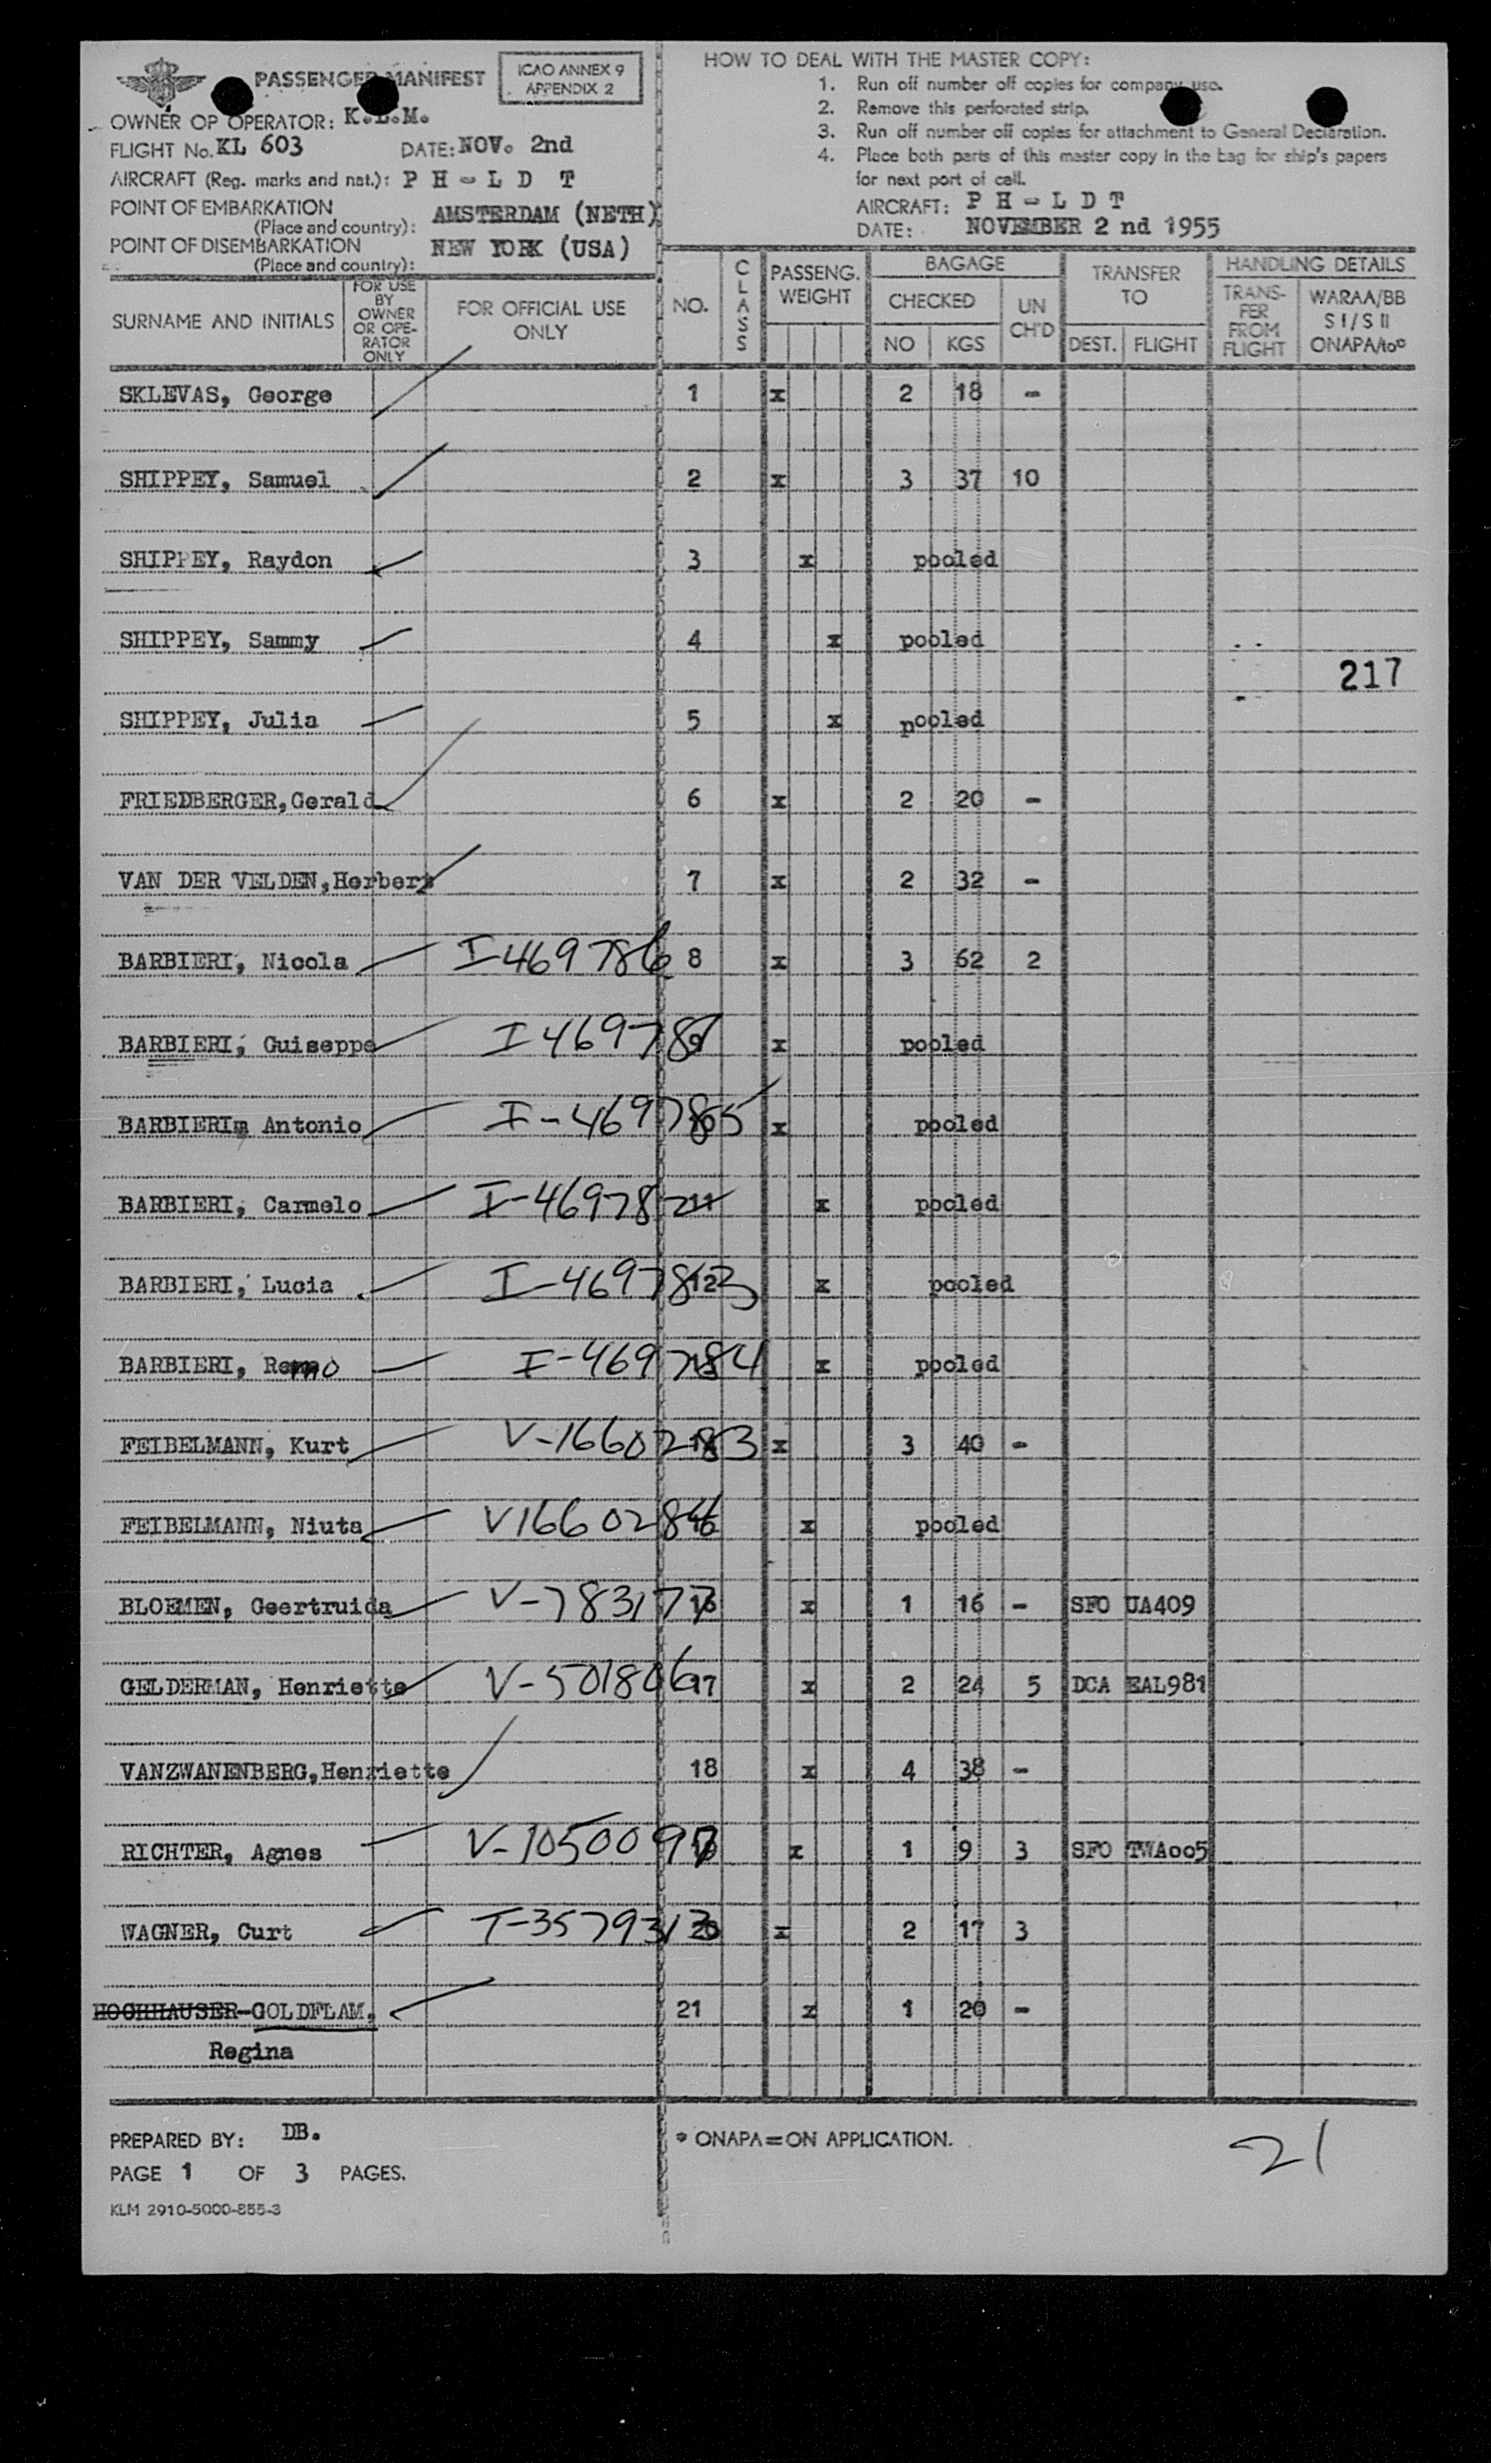 PASSENGER MANIFEST
ICAO ANNEX 9
APPENDIX 2
OWNER OP OPERATOR: K.L.M.
FLIGHT No. KL 603 DATE: NOV. 2nd
AIRCRAFT (Reg. marks and nat.): P H - L D T
POINT OF EMBARKATION
(Place and country): AMSTERDAM (NETH)
POINT OF DISEMBARKATION
(Place and country): NEW YORK (USA)
HOW TO DEAL WITH THE MASTER COPY:
1. Run off number off copies for company use.
2. Remove this perforated strip.
3. Run off number off copies for attachment to General Declaration.
4. Place both parts of this master copy in the bag for ship's papers
for next port of call.
AIRCRAFT: P H - L D T
DATE: NOVEMBER 2 nd 1955
SURNAME AND INITIALS
FOR USE
BY
OWNER
OR OPE-
RATOR
ONLY
FOR OFFICIAL USE
ONLY
NO.
CLASS
PASSENG.
WEIGHT
BAGAGE
CHECKED
NO KGS
UN
CH'D
TRANSFER
TO
DEST. FLIGHT
HANDLING DETAILS
TRANS-
FER
FROM
FLIGHT
WARAA/BB
S I/S II
ONAPA/to°
SKLEVAS, George 1 x 2 18 -
SHIPPEY, Samuel 2 x 3 37 10
SHIPPEY, Raydon 3 x pooled
SHIPPEY, Sammy 4 x pooled
217
SHIPPEY, Julia 5 x pooled
FRIEDBERGER, Gerald 6 x 2 20 -
VAN DER VELDEN, Herbert 7 x 2 32 -
BARBIERI, Nicola I-469786 8 x 3 62 2
BARBIERI, Guiseppe x pooled
BARBIERIm Antonio I-469785 x pooled
BARBIERI, Carmelo I-469782 11 x pooled
BARBIERI, Lucia I-469783 12 x pooled
BARBIERI, Remo I-469784 x pooled
FEIBELMANN, Kurt V-1660283 x 3 40 -
FEIBELMANN, Niuta x pooled
BLOEMEN, Geertruida 16 x 1 16 - SFO UA409
GELDERMAN, Henriette V-501806 17 x 2 24 5 DCA EAL981
VANZWANENBERG, Henriette 18 x 4 38 -
RICHTER, Agnes x 1 9 3 SFO TWA005
WAGNER, Curt T-3579313 20 x 2 17 3
HOCHHAUSER-GOLDFLAM, 21 x 1 20 -
Regina
PREPARED BY: DB.
* ONAPA = ON APPLICATION.
21
PAGE 1 OF 3 PAGES.
KLM 2910-5000-855-3